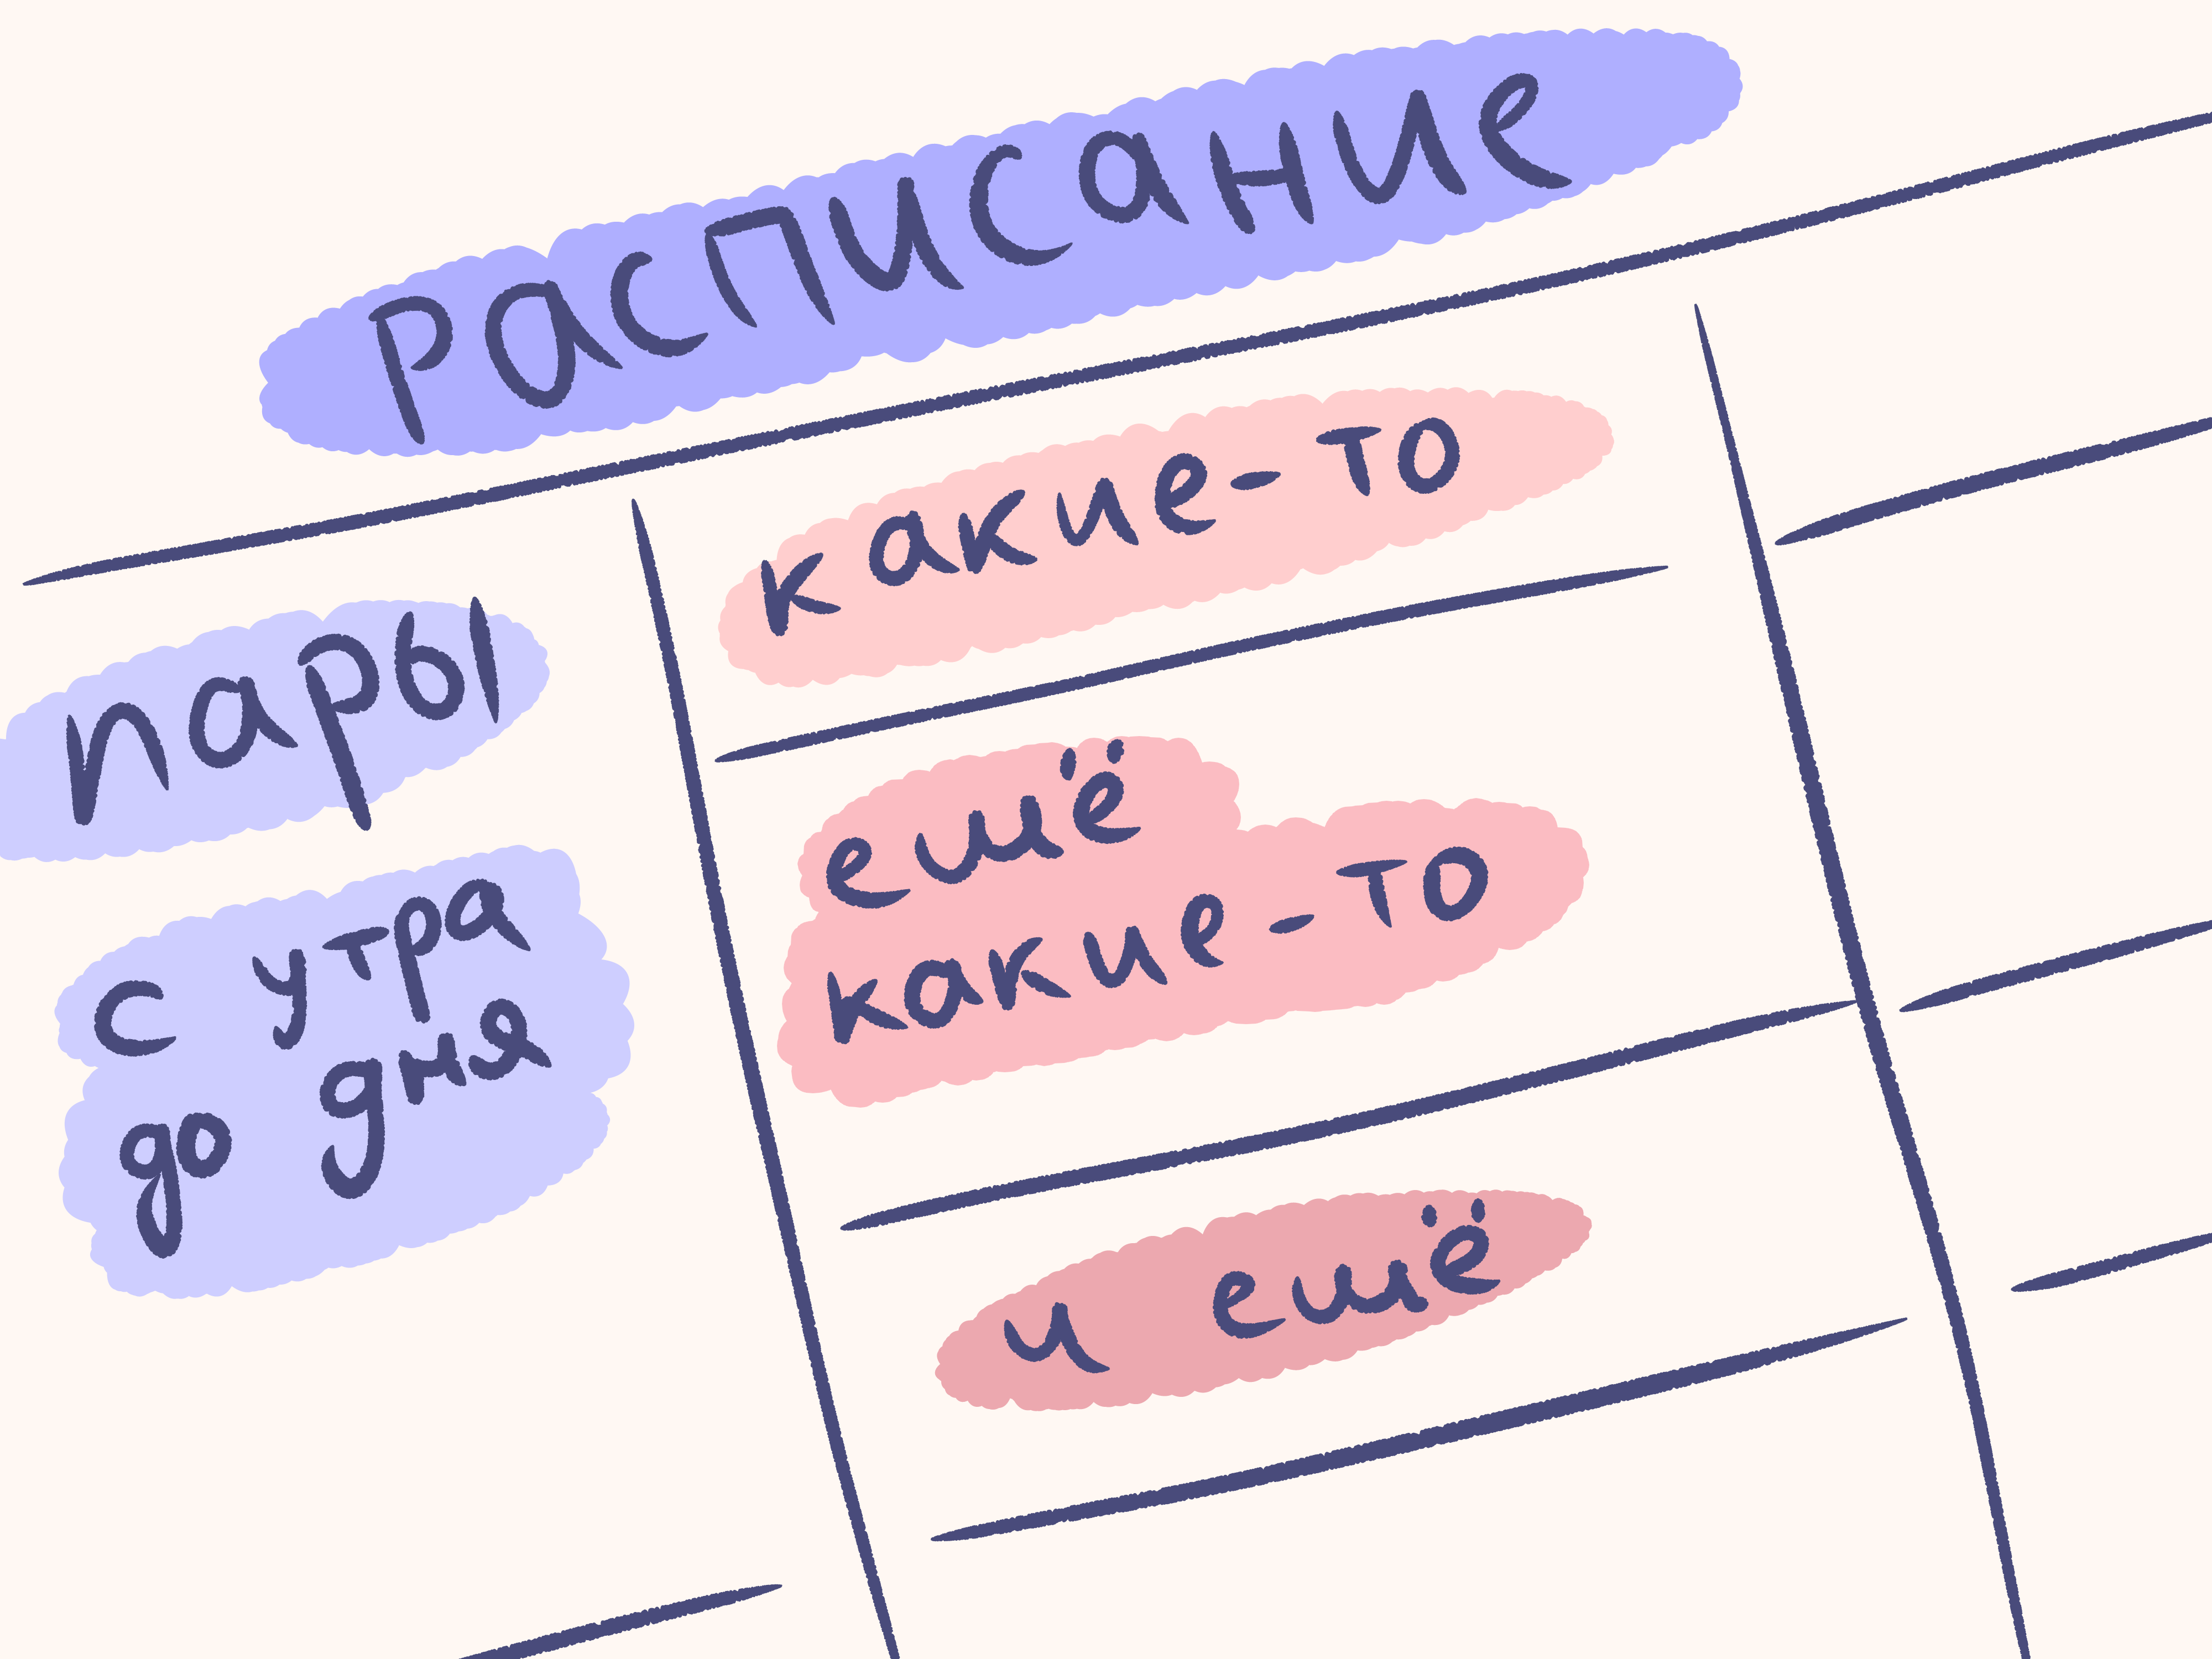 Расписание
пары
с утра
до дня
какие-то
ещё
какие-то
и ещё